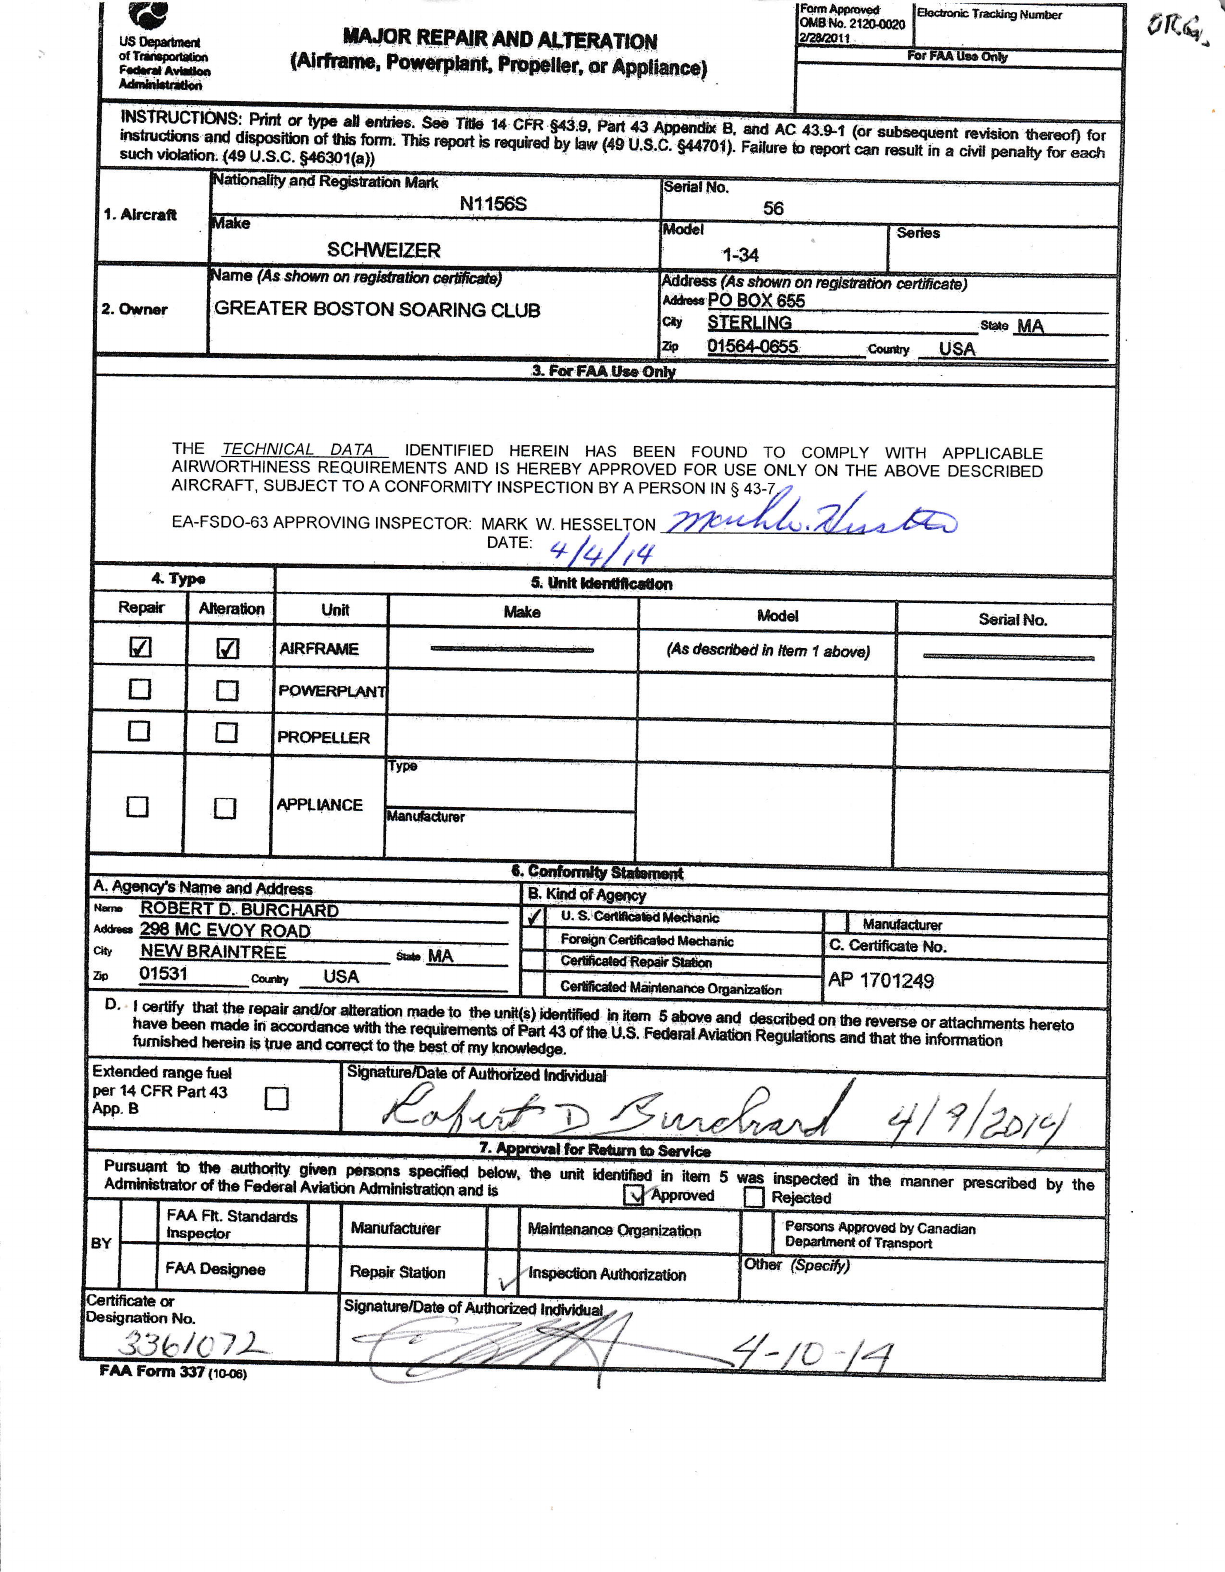 ORG.
US Department
of Transportation
Federal Aviation
Administration
MAJOR REPAIR AND ALTERATION
(Airframe, Powerplant, Propeller, or Appliance)
Form Approved
OMB No. 2120-0020
2/28/2011
Electronic Tracking Number
For FAA Use Only
INSTRUCTIONS: Print or type all entries. See Title 14 CFR §43.9, Part 43 Appendix B, and AC 43.9-1 (or subsequent revision thereof) for
instructions and disposition of this form. This report is required by law (49 U.S.C. §44701). Failure to report can result in a civil penalty for each
such violation. (49 U.S.C. §46301(a))
1. Aircraft
Nationality and Registration Mark
N1156S
Serial No.
56
Make
SCHWEIZER
Model
1-34
Series
2. Owner
Name (As shown on registration certificate)
GREATER BOSTON SOARING CLUB
Address (As shown on registration certificate)
Address PO BOX 655
City STERLING State MA
Zip 01564-0655 Country USA
3. For FAA Use Only
THE TECHNICAL DATA IDENTIFIED HEREIN HAS BEEN FOUND TO COMPLY WITH APPLICABLE
AIRWORTHINESS REQUIREMENTS AND IS HEREBY APPROVED FOR USE ONLY ON THE ABOVE DESCRIBED
AIRCRAFT, SUBJECT TO A CONFORMITY INSPECTION BY A PERSON IN § 43-7
EA-FSDO-63 APPROVING INSPECTOR: MARK W. HESSELTON Mark W. Hesselton
DATE: 4/4/14
4. Type
5. Unit Identification
Repair Alteration Unit Make Model Serial No.
AIRFRAME (As described in Item 1 above)
POWERPLANT
PROPELLER
APPLIANCE
Type
Manufacturer
6. Conformity Statement
A. Agency's Name and Address
Name ROBERT D. BURCHARD
Address 298 MC EVOY ROAD
City NEW BRAINTREE State MA
Zip 01531 Country USA
B. Kind of Agency
U. S. Certificated Mechanic
Foreign Certificated Mechanic
Certificated Repair Station
Certificated Maintenance Organization
Manufacturer
C. Certificate No.
AP 1701249
D. I certify that the repair and/or alteration made to the unit(s) identified in item 5 above and described on the reverse or attachments hereto
have been made in accordance with the requirements of Part 43 of the U.S. Federal Aviation Regulations and that the information
furnished herein is true and correct to the best of my knowledge.
Extended range fuel
per 14 CFR Part 43
App. B
Signature/Date of Authorized Individual
Robert D Burchard 4/9/2014
7. Approval for Return to Service
Pursuant to the authority given persons specified below, the unit identified in item 5 was inspected in the manner prescribed by the
Administrator of the Federal Aviation Administration and is Approved Rejected
BY
FAA Flt. Standards
Inspector
Manufacturer
Maintenance Organization
Persons Approved by Canadian
Department of Transport
FAA Designee
Repair Station
Inspection Authorization
Other (Specify)
Certificate or
Designation No.
3361072
Signature/Date of Authorized Individual
4-10-14
FAA Form 337 (10-06)